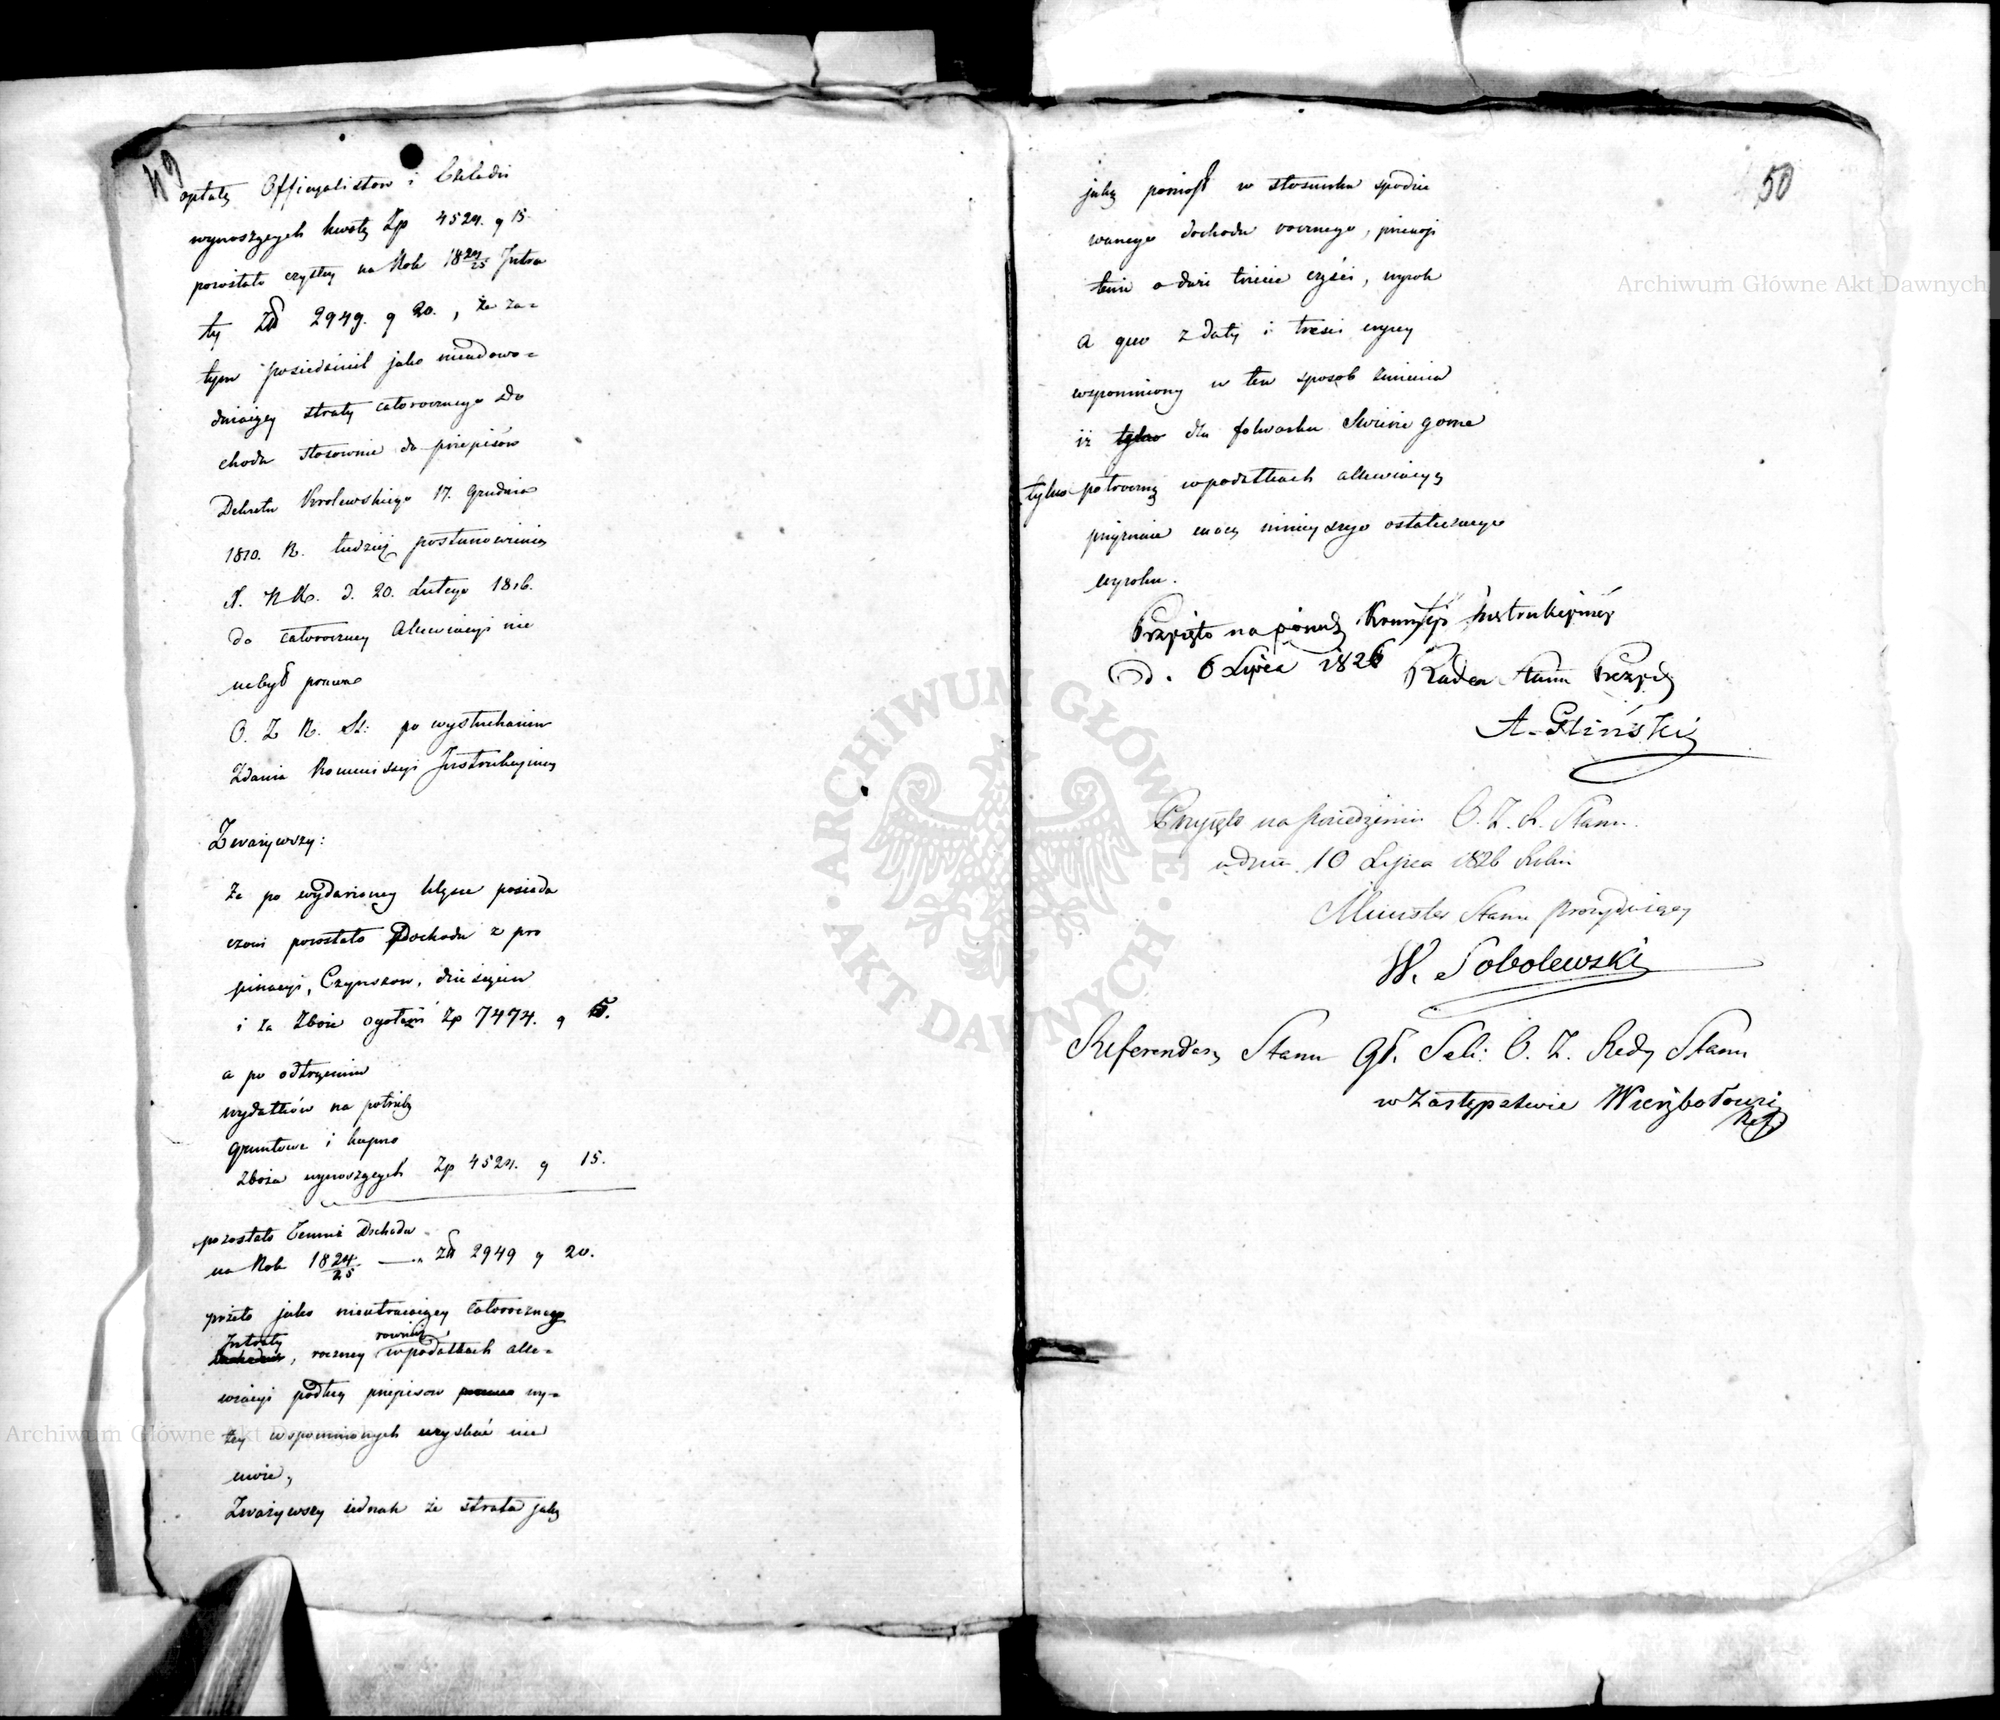 49
opłaty Officyalistow i Czeladzi
wynoszących kwotę Zp 4524. g 15.
pozostało czystey na Rok 1824/25 Intra
ty Zł 2949. g 20., że za-
tym posiedziciel jako nieudowo-
dniaiący straty całorocznego do
chodu stosownie do przepisów
Dekretu Krolewskiego 17. Grudnia
1810. R. tudzież postanowienia
X. N. d. 20. Lutego 1816.
do całoroczney allewiacyi nie
nabył prawa
O. Z. R. St: po wysłuchaniu
Zdania Kommissyi Instrukcyiney
Zważywszy:
Że po wydarzoney klęsce posiada
czowi pozostało Dochodu z pro
pinacyi, Czynszow, dziesięcin
i za Zboże ogołem Zp 7474. g 5.
a po odtrąceniu
wydatków na potrzeby
gruntowe i kupno
zboża wynoszących Zp 4524. g 15.
pozostało Temuż Dochodu
na Rok 1824/25 — Zł 2949 g 20.
przeto jako nieutracaiący całorocznego
Intraty rownież
, roczney w podatkach alle-
wiacyi podług przepisow wy-
żey wspomnionych uzyskać nie
może,
Zważywszy iednak że strata jaką
50
jaką poniosł w stosunku spodzie
wanego dochodu rocznego, przenosi
temu o dwie trzecie części, wyrok
a quo z daty i treści wyżey
wspomniony w ten sposob zmienia
iż tylko dla folwarku Swierze gorne
tylko połroczną w podatkach allewiacyą
przyznaie mocą ninieyszego ostatecznego
wyroku.
Przyięto na posiedz. Kommissyi Instrukcyiney
d. 6 Lipca 1826 Radca Stanu Prezyd.
A. Gliński
Przyięto na posiedzeniu O. Z. R. Stanu
w dniu 10 Lipca 1826 Roku
Minister Stanu Prezyduiący
W. Sobolewski
Referendarz Stanu Gł. Sek: O. Z. Rady Stanu
w Zastępstwie Wierzbołowicz
Ref.
Archiwum Główne Akt Dawnych
Archiwum Główne Akt Dawnych
ARCHIWUM GŁÓWNE
AKT DAWNYCH